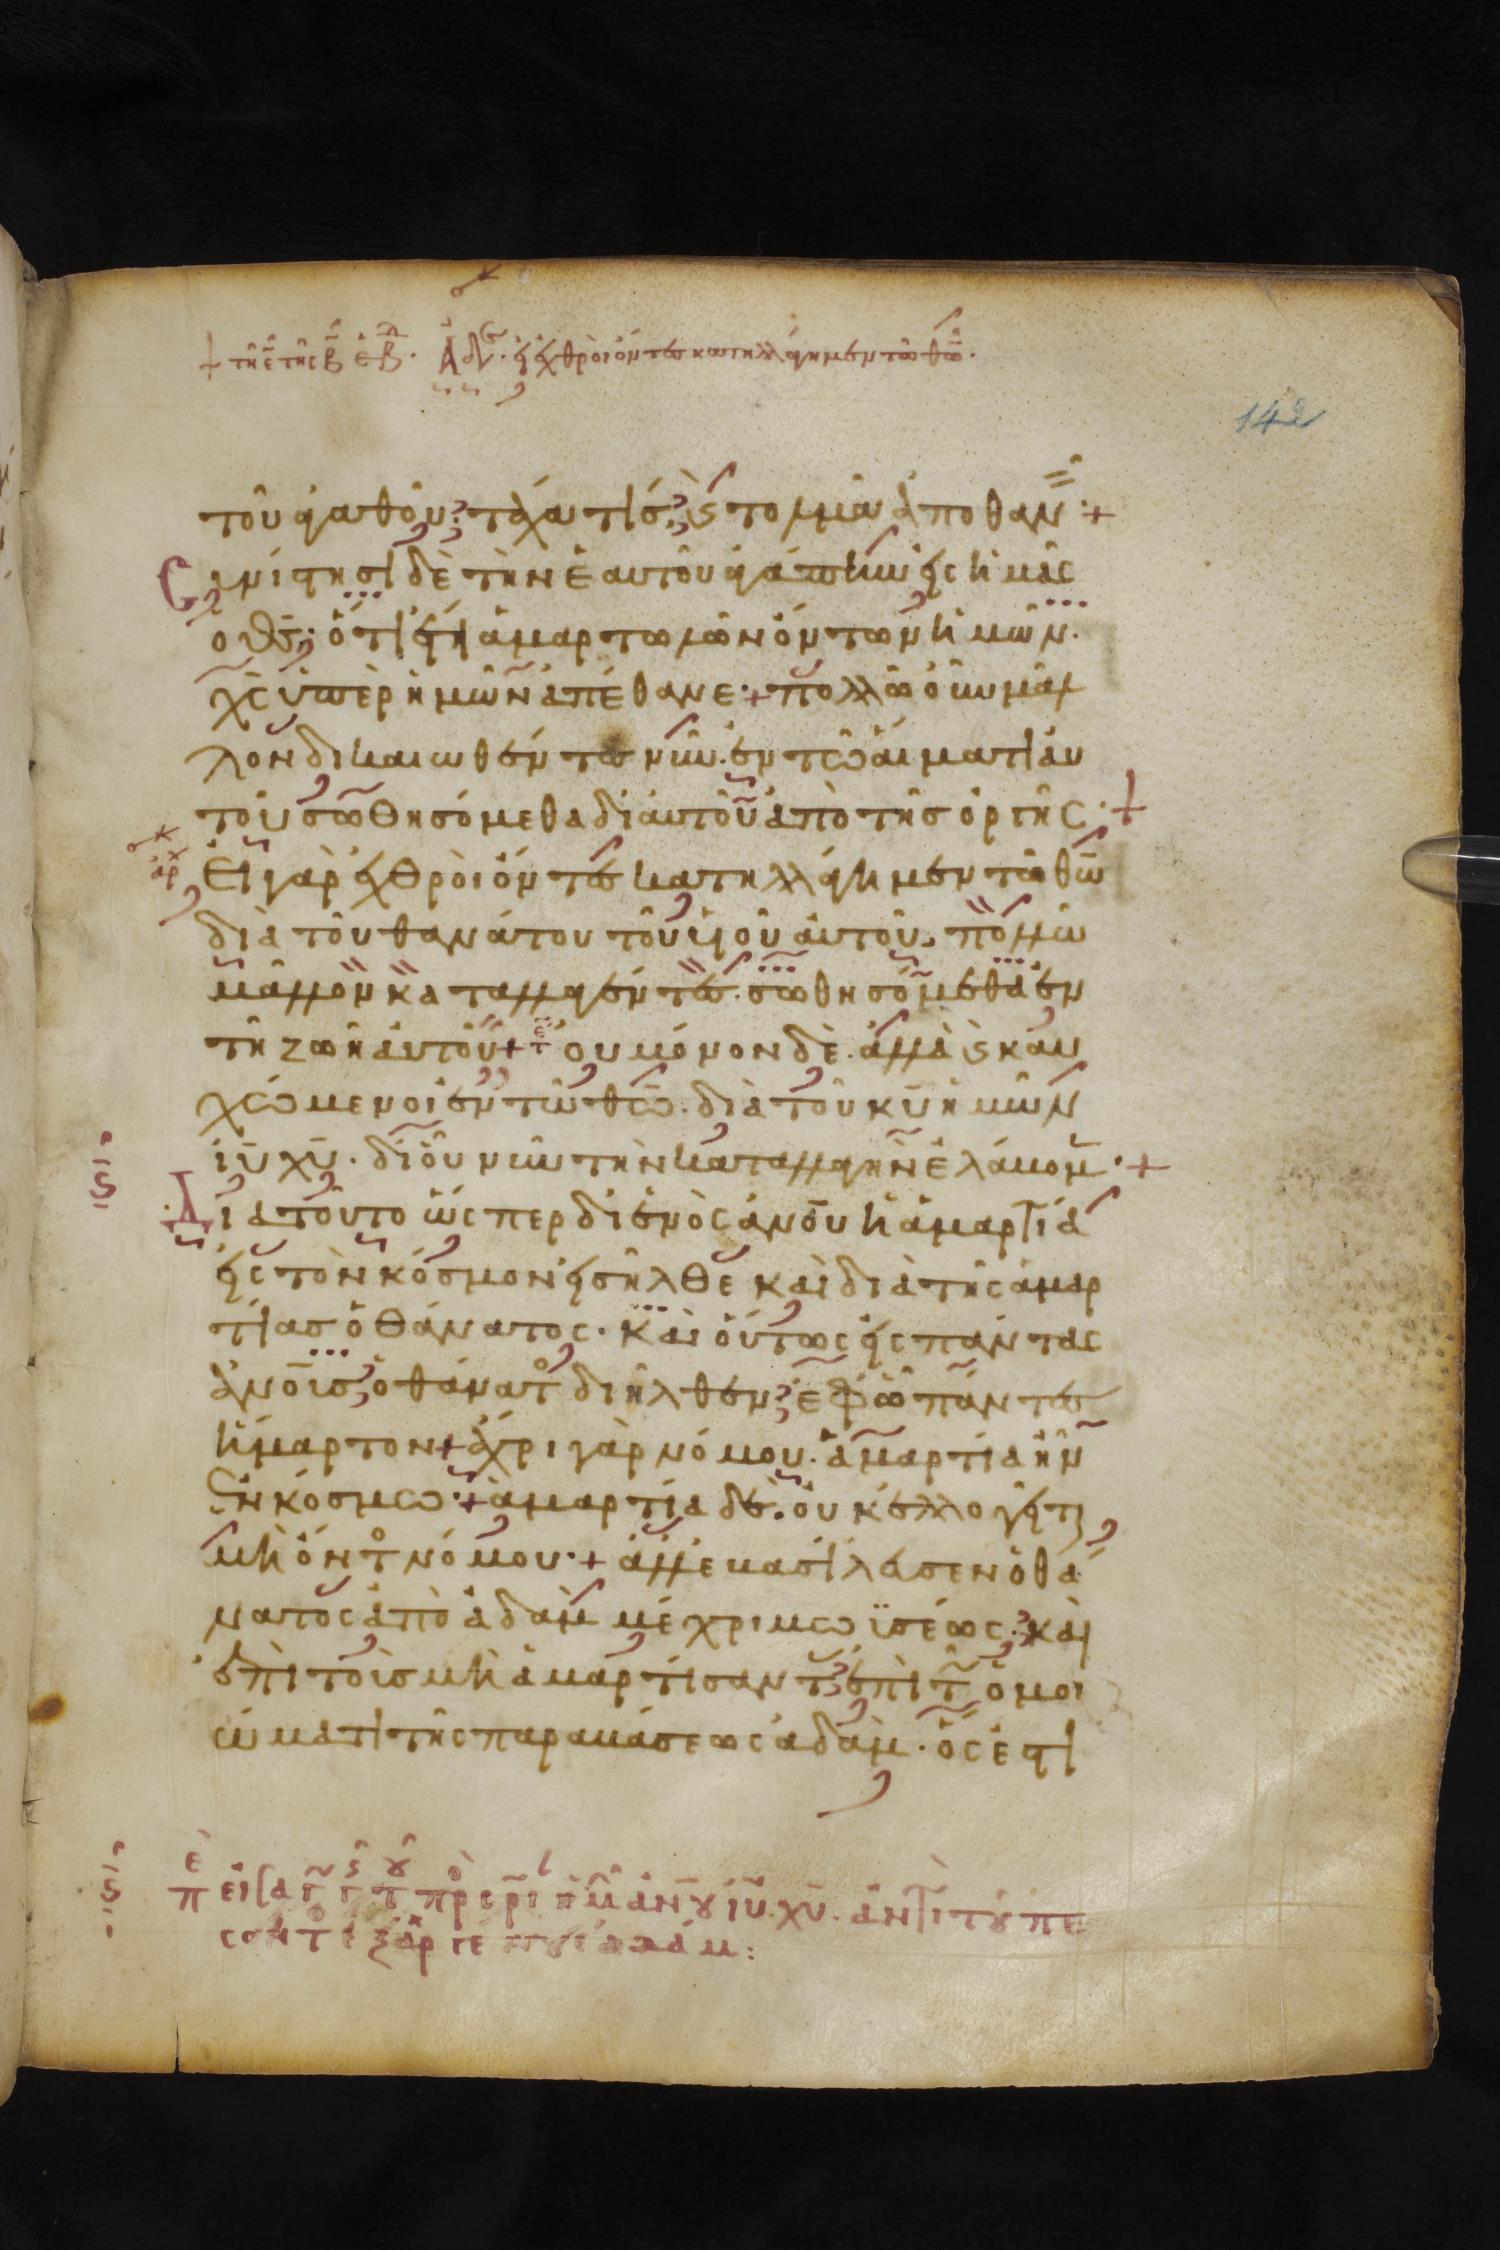 + τῆ ε̄ τῆς β̄ ἑβδ. Ἀδελ. εἰ ἐχθροὶ ὄντες κατηλλάγημεν τῶ θῶ.
142
τοῦ ἀγαθοῦ· τάχα τίς ϗ τολμᾶ ἀποθαν +
Συνίστησι δὲ τὴν ἑαυτοῦ ἀγάπην εἰς ἡμᾶς
ὁ θς· ὅτι ἔτι ἁμαρτωλῶν ὄντων ἡμῶν.
χς ὑπὲρ ἡμῶν ἀπέθανε·+ πολλῶ οὖν μᾶλ
λον δικαιωθέντες νῦν. ἐν τῶ αἵματι αὐ
τοῦ σωθησόμεθα δι αὐτοῦ ἀπὸ τῆς ὀργῆς· +
ἀρ Εἰ γὰρ ἐχθροὶ ὄντες κατηλλάγημεν τῶ θω
διὰ τοῦ θανάτου τοῦ υἱοῦ αὐτοῦ, πολλῶ
μᾶλλον καταλλαγέντες. σωθησόμεθα ἐν
τῆ ζωῆ αὐτοῦ + οὐ μόνον δὲ. ἀλλὰ ϗ καυ
χώμενοι ἐν τῶ θω. διὰ τοῦ κυ ἡμῶν
ιυ χυ. δι οὗ νῦν τὴν καταλλαγὴν ἐλάβομ·+
ϛ Διὰ τοῦτο ὥσπερ δι ἑνὸς ἀνου ἡ ἁμαρτία
εἰς τὸν κόσμον εἰσῆλθε καὶ διὰ τῆς ἁμαρ
τίας ὁ θάνατος· καὶ οὕτως εἰς πάντας
ἀνοις ὁ θάνατο διῆλθεν· ἐφ ὧ πάντες
ἥμαρτον + ἄχρι γὰρ νόμου. ἁμαρτία ἦν
ἐν κόσμω·+ ἁμαρτία δὲ. οὐκ ἐλλογεῖτ
μὴ ὄντο νόμου·+ ἀλλ ἐβασίλευσεν ὁ θά
νατος ἀπὸ ἀδὰμ μέχρι μωϊσέως· καὶ
ἐπὶ τοῖς μὴ ἁμαρτήσαντ ἐπὶ τ ὁμοι
ώματι τῆς παραβάσεως ἀδάμ· ὅς ἐστι